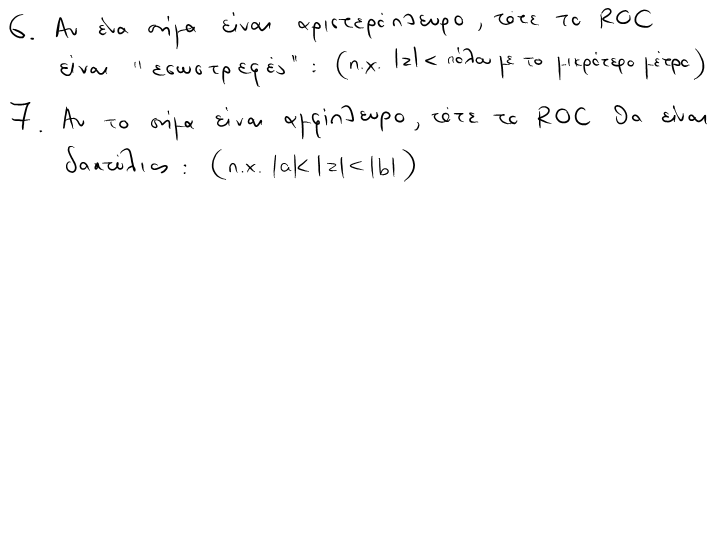 6. Αν ένα σήμα είναι αριστερόπλευρο, τότε το ROC
είναι "εσωστρεφές": (π.χ. |z| < πόλου με το μικρότερο μέτρο)
7. Αν το σήμα είναι αμφίπλευρο, τότε το ROC θα είναι
δακτύλιος: (π.χ. |a|<|z|<|b|)